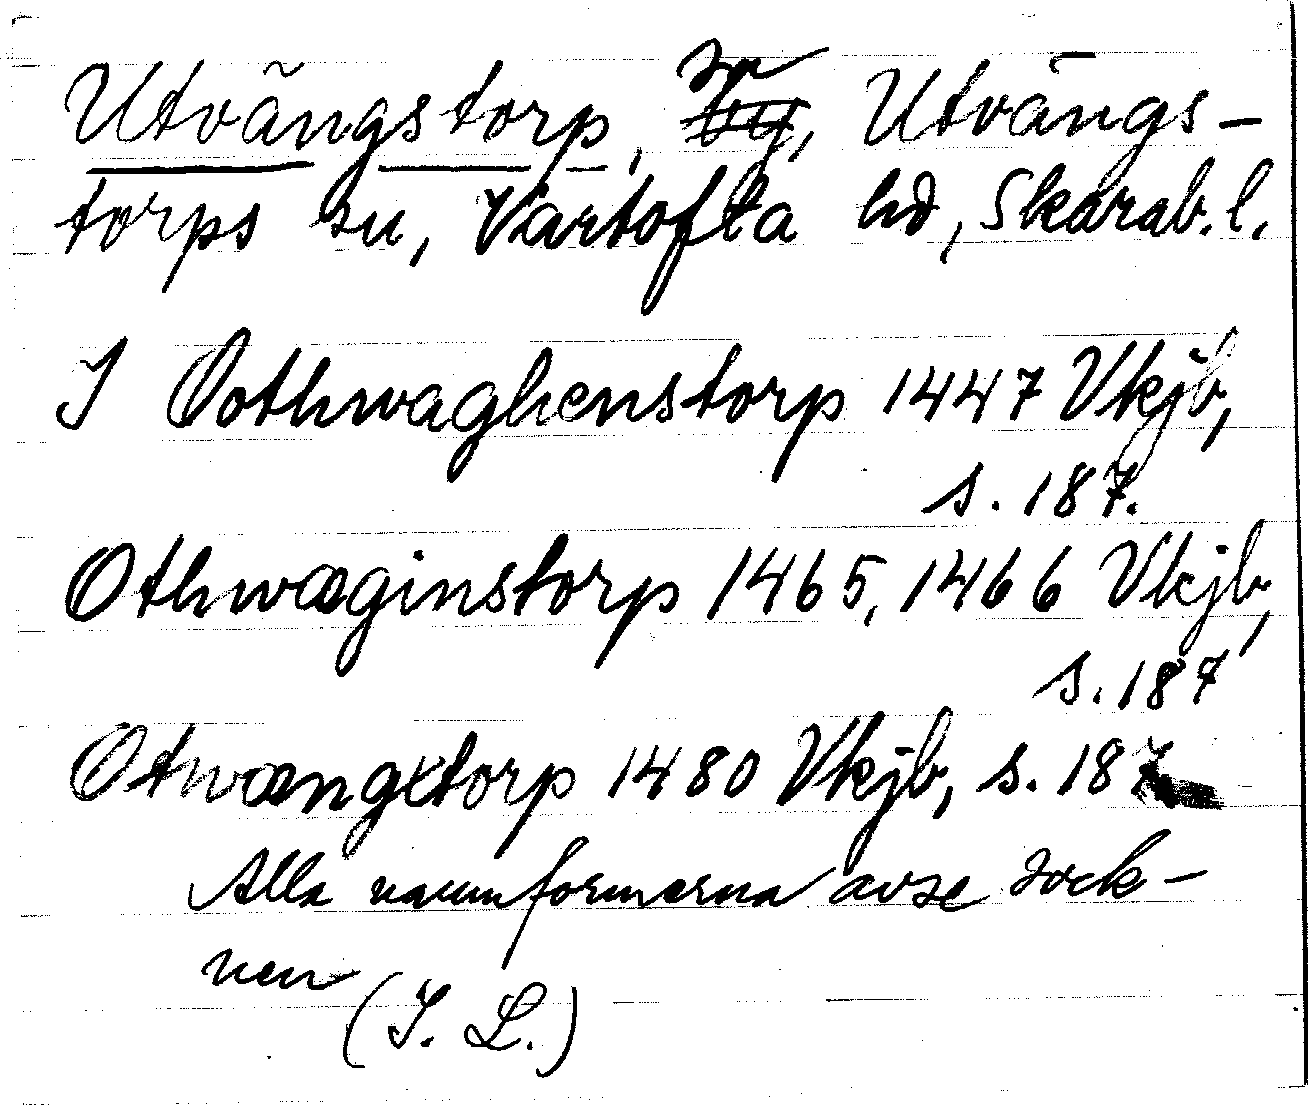 Utvängstorp, sn, Utvängs-
torps sn, Vartofta hd, Skarab. l.
I Oothwaghenstorp 1447 Vkjb,
s. 187.
Othwæginstorp 1465, 1466 Vkjb,
s. 187
Otwængxtorp 1480 Vkjb, s. 187
Alla namnformerna avse sock-
nen
(I. L.)